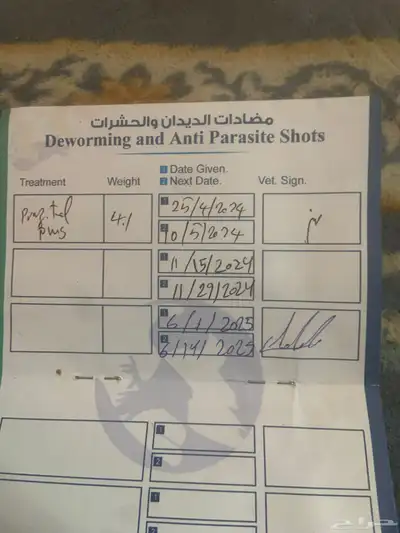 مضادات الديدان والحشرات
Deworming and Anti Parasite Shots
Treatment Weight 1 Date Given. 2 Next Date. Vet. Sign.
4.1
1 25/4/2024
2 10/5/2024
1 11/15/2024
2 11/29/2024
1 6/1/2025
2 6/14/2025
1
2
1
2
حراج